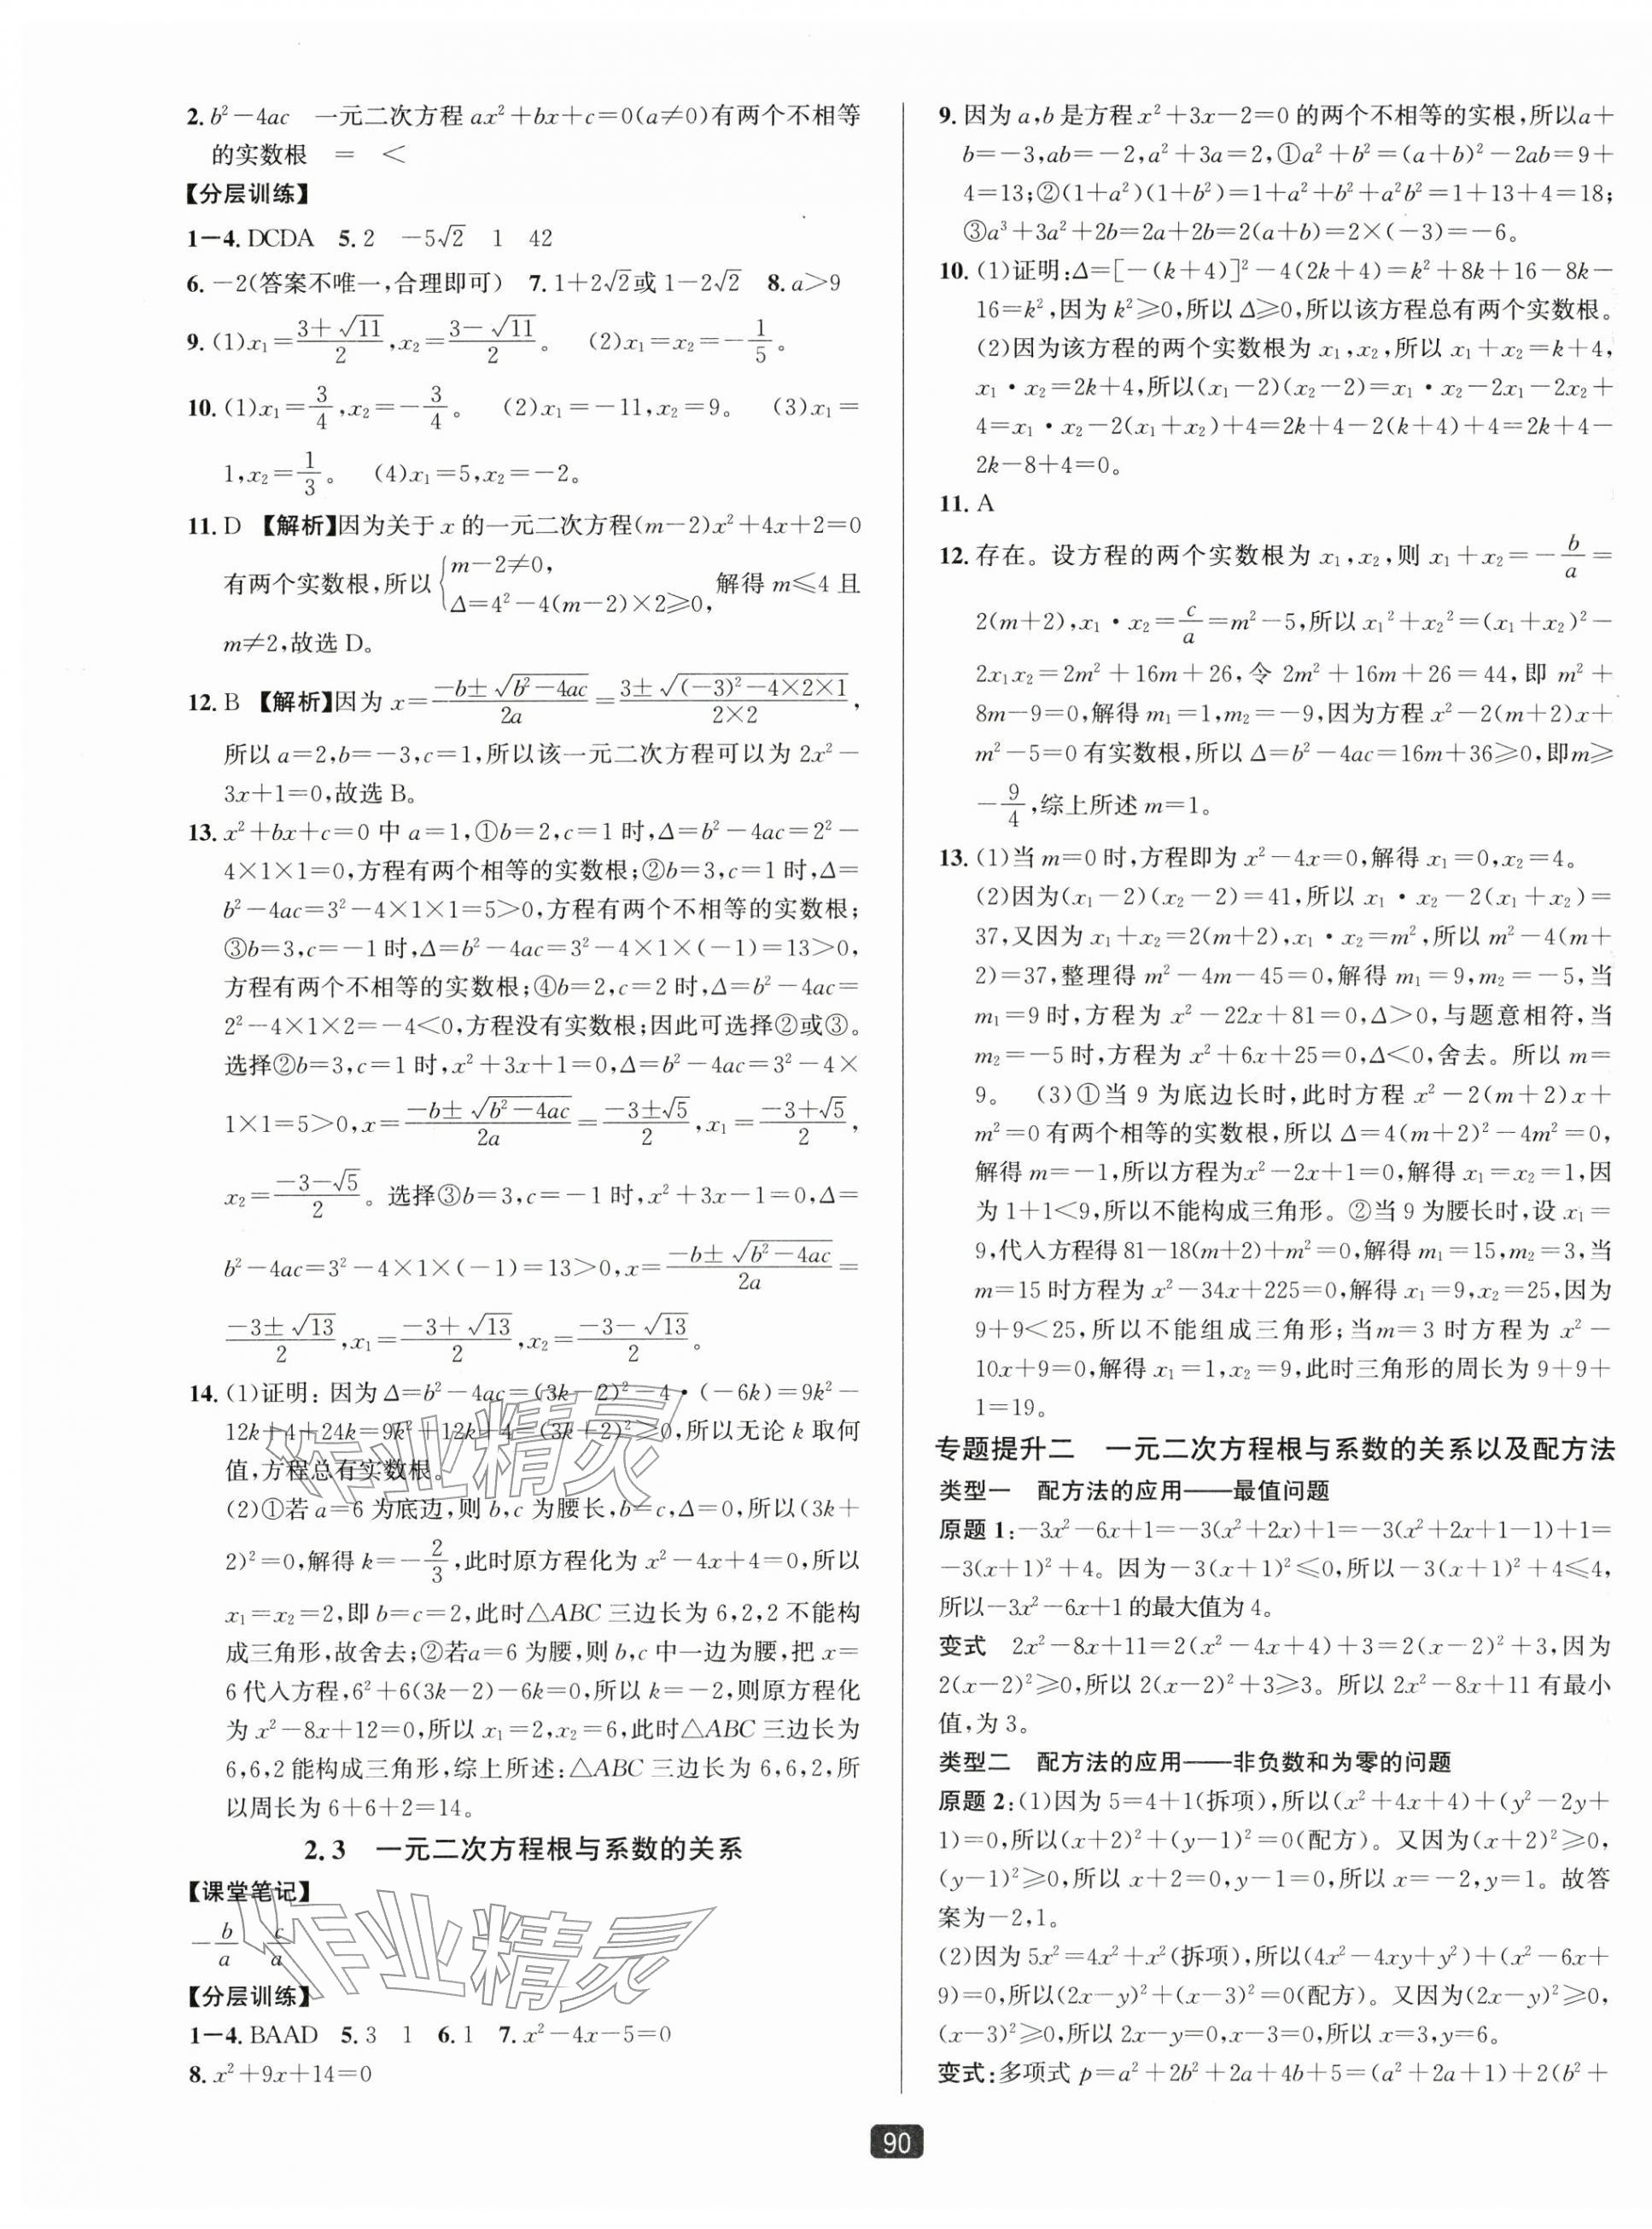 2. b²－4ac　一元二次方程 ax²＋bx＋c＝0(a≠0)有两个不相等
的实数根　＝　＜
【分层训练】
1－4. DCDA　5. 2　－5√2　1　42
6. －2(答案不唯一,合理即可)　7. 1＋2√2或 1－2√2　8. a＞9
9. (1)x₁＝(3＋√11)/2,x₂＝(3－√11)/2。　(2)x₁＝x₂＝－1/5。
10. (1)x₁＝3/4,x₂＝－3/4。　(2)x₁＝－11,x₂＝9。　(3)x₁＝
1,x₂＝1/3。　(4)x₁＝5,x₂＝－2。
11. D 【解析】因为关于 x 的一元二次方程(m－2)x²＋4x＋2＝0
有两个实数根,所以{m－2≠0, Δ＝4²－4(m－2)×2≥0, 解得 m≤4 且
m≠2,故选 D。
12. B 【解析】因为 x＝(－b±√(b²－4ac))/2a＝(3±√((－3)²－4×2×1))/(2×2),
所以 a＝2,b＝－3,c＝1,所以该一元二次方程可以为 2x²－
3x＋1＝0,故选 B。
13. x²＋bx＋c＝0 中 a＝1,①b＝2,c＝1 时,Δ＝b²－4ac＝2²－
4×1×1＝0,方程有两个相等的实数根;②b＝3,c＝1 时,Δ＝
b²－4ac＝3²－4×1×1＝5＞0,方程有两个不相等的实数根;
③b＝3,c＝－1 时,Δ＝b²－4ac＝3²－4×1×(－1)＝13＞0,
方程有两个不相等的实数根;④b＝2,c＝2 时,Δ＝b²－4ac＝
2²－4×1×2＝－4＜0,方程没有实数根;因此可选择②或③。
选择②b＝3,c＝1 时,x²＋3x＋1＝0,Δ＝b²－4ac＝3²－4×
1×1＝5＞0,x＝(－b±√(b²－4ac))/2a＝(－3±√5)/2,x₁＝(－3＋√5)/2,
x₂＝(－3－√5)/2。选择③b＝3,c＝－1 时,x²＋3x－1＝0,Δ＝
b²－4ac＝3²－4×1×(－1)＝13＞0,x＝(－b±√(b²－4ac))/2a＝
(－3±√13)/2,x₁＝(－3＋√13)/2,x₂＝(－3－√13)/2。
14. (1)证明: 因为 Δ＝b²－4ac＝(3k－2)²－4·(－6k)＝9k²－
12k＋4＋24k＝9k²＋12k＋4＝(3k＋2)²≥0,所以无论 k 取何
值,方程总有实数根。
(2)①若 a＝6 为底边,则 b,c 为腰长,b＝c,Δ＝0,所以(3k＋
2)²＝0,解得 k＝－2/3,此时原方程化为 x²－4x＋4＝0,所以
x₁＝x₂＝2,即 b＝c＝2,此时△ABC 三边长为 6,2,2 不能构
成三角形,故舍去;②若a＝6 为腰,则 b,c 中一边为腰,把 x＝
6 代入方程,6²＋6(3k－2)－6k＝0,所以 k＝－2,则原方程化
为 x²－8x＋12＝0,所以 x₁＝2,x₂＝6,此时△ABC 三边长为
6,6,2能构成三角形,综上所述:△ABC 三边长为 6,6,2,所
以周长为 6＋6＋2＝14。
2.3　一元二次方程根与系数的关系
【课堂笔记】
－b/a　c/a
【分层训练】
1－4. BAAD　5. 3　1　6. 1　7. x²－4x－5＝0
8. x²＋9x＋14＝0
9. 因为 a,b 是方程 x²＋3x－2＝0 的两个不相等的实根,所以a＋
b＝－3,ab＝－2,a²＋3a＝2,①a²＋b²＝(a＋b)²－2ab＝9＋
4＝13;②(1＋a²)(1＋b²)＝1＋a²＋b²＋a²b²＝1＋13＋4＝18;
③a³＋3a²＋2b＝2a＋2b＝2(a＋b)＝2×(－3)＝－6。
10. (1)证明:Δ＝[－(k＋4)]²－4(2k＋4)＝k²＋8k＋16－8k－
16＝k²,因为 k²≥0,所以 Δ≥0,所以该方程总有两个实数根。
(2)因为该方程的两个实数根为 x₁,x₂,所以 x₁＋x₂＝k＋4,
x₁·x₂＝2k＋4,所以(x₁－2)(x₂－2)＝x₁·x₂－2x₁－2x₂＋
4＝x₁·x₂－2(x₁＋x₂)＋4＝2k＋4－2(k＋4)＋4＝2k＋4－
2k－8＋4＝0。
11. A
12. 存在。设方程的两个实数根为 x₁,x₂,则 x₁＋x₂＝－b/a＝
2(m＋2),x₁·x₂＝c/a＝m²－5,所以 x₁²＋x₂²＝(x₁＋x₂)²－
2x₁x₂＝2m²＋16m＋26,令 2m²＋16m＋26＝44,即 m²＋
8m－9＝0,解得 m₁＝1,m₂＝－9,因为方程 x²－2(m＋2)x＋
m²－5＝0 有实数根,所以 Δ＝b²－4ac＝16m＋36≥0,即m≥
－9/4,综上所述 m＝1。
13. (1)当 m＝0 时,方程即为 x²－4x＝0,解得 x₁＝0,x₂＝4。
(2)因为(x₁－2)(x₂－2)＝41,所以 x₁·x₂－2(x₁＋x₂)＝
37,又因为 x₁＋x₂＝2(m＋2),x₁·x₂＝m²,所以 m²－4(m＋
2)＝37,整理得 m²－4m－45＝0,解得 m₁＝9,m₂＝－5,当
m₁＝9 时,方程为 x²－22x＋81＝0,Δ＞0,与题意相符,当
m₂＝－5 时,方程为 x²＋6x＋25＝0,Δ＜0,舍去。所以 m＝
9。　(3)①当 9 为底边长时,此时方程 x²－2(m＋2)x＋
m²＝0 有两个相等的实数根,所以 Δ＝4(m＋2)²－4m²＝0,
解得 m＝－1,所以方程为x²－2x＋1＝0,解得 x₁＝x₂＝1,因
为 1＋1＜9,所以不能构成三角形。②当 9 为腰长时,设 x₁＝
9,代入方程得 81－18(m＋2)＋m²＝0,解得 m₁＝15,m₂＝3,当
m＝15 时方程为 x²－34x＋225＝0,解得 x₁＝9,x₂＝25,因为
9＋9＜25,所以不能组成三角形;当m＝3 时方程为 x²－
10x＋9＝0,解得 x₁＝1,x₂＝9,此时三角形的周长为 9＋9＋
1＝19。
专题提升二　一元二次方程根与系数的关系以及配方法
类型一　配方法的应用——最值问题
原题 1:－3x²－6x＋1＝－3(x²＋2x)＋1＝－3(x²＋2x＋1－1)＋1＝
－3(x＋1)²＋4。因为－3(x＋1)²≤0,所以－3(x＋1)²＋4≤4,
所以－3x²－6x＋1 的最大值为 4。
变式　2x²－8x＋11＝2(x²－4x＋4)＋3＝2(x－2)²＋3,因为
2(x－2)²≥0,所以 2(x－2)²＋3≥3。所以 2x²－8x＋11 有最小
值,为 3。
类型二　配方法的应用——非负数和为零的问题
原题 2:(1)因为 5＝4＋1(拆项),所以(x²＋4x＋4)＋(y²－2y＋
1)＝0,所以(x＋2)²＋(y－1)²＝0(配方)。又因为(x＋2)²≥0,
(y－1)²≥0,所以 x＋2＝0,y－1＝0,所以 x＝－2,y＝1。故答
案为－2,1。
(2)因为 5x²＝4x²＋x²(拆项),所以(4x²－4xy＋y²)＋(x²－6x＋
9)＝0,所以(2x－y)²＋(x－3)²＝0(配方)。又因为(2x－y)²≥0,
(x－3)²≥0,所以 2x－y＝0,x－3＝0,所以 x＝3,y＝6。
变式:多项式 p＝a²＋2b²＋2a＋4b＋5＝(a²＋2a＋1)＋2(b²＋
90
作业精灵
作业精灵